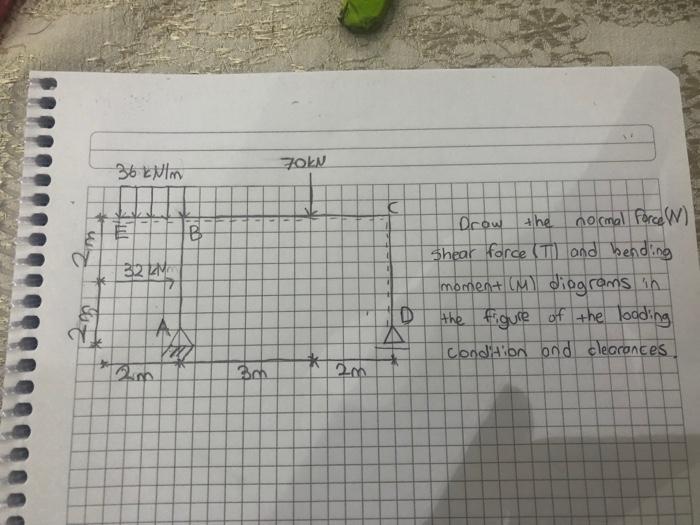 36 kN/m
70kN
C
E
B
2m
32 kN
2m
A
D
2m
3m
2m
Draw the normal force(N)
shear force (T) and bending
moment (M) diagrams in
the figure of the loading
condition and clearances.